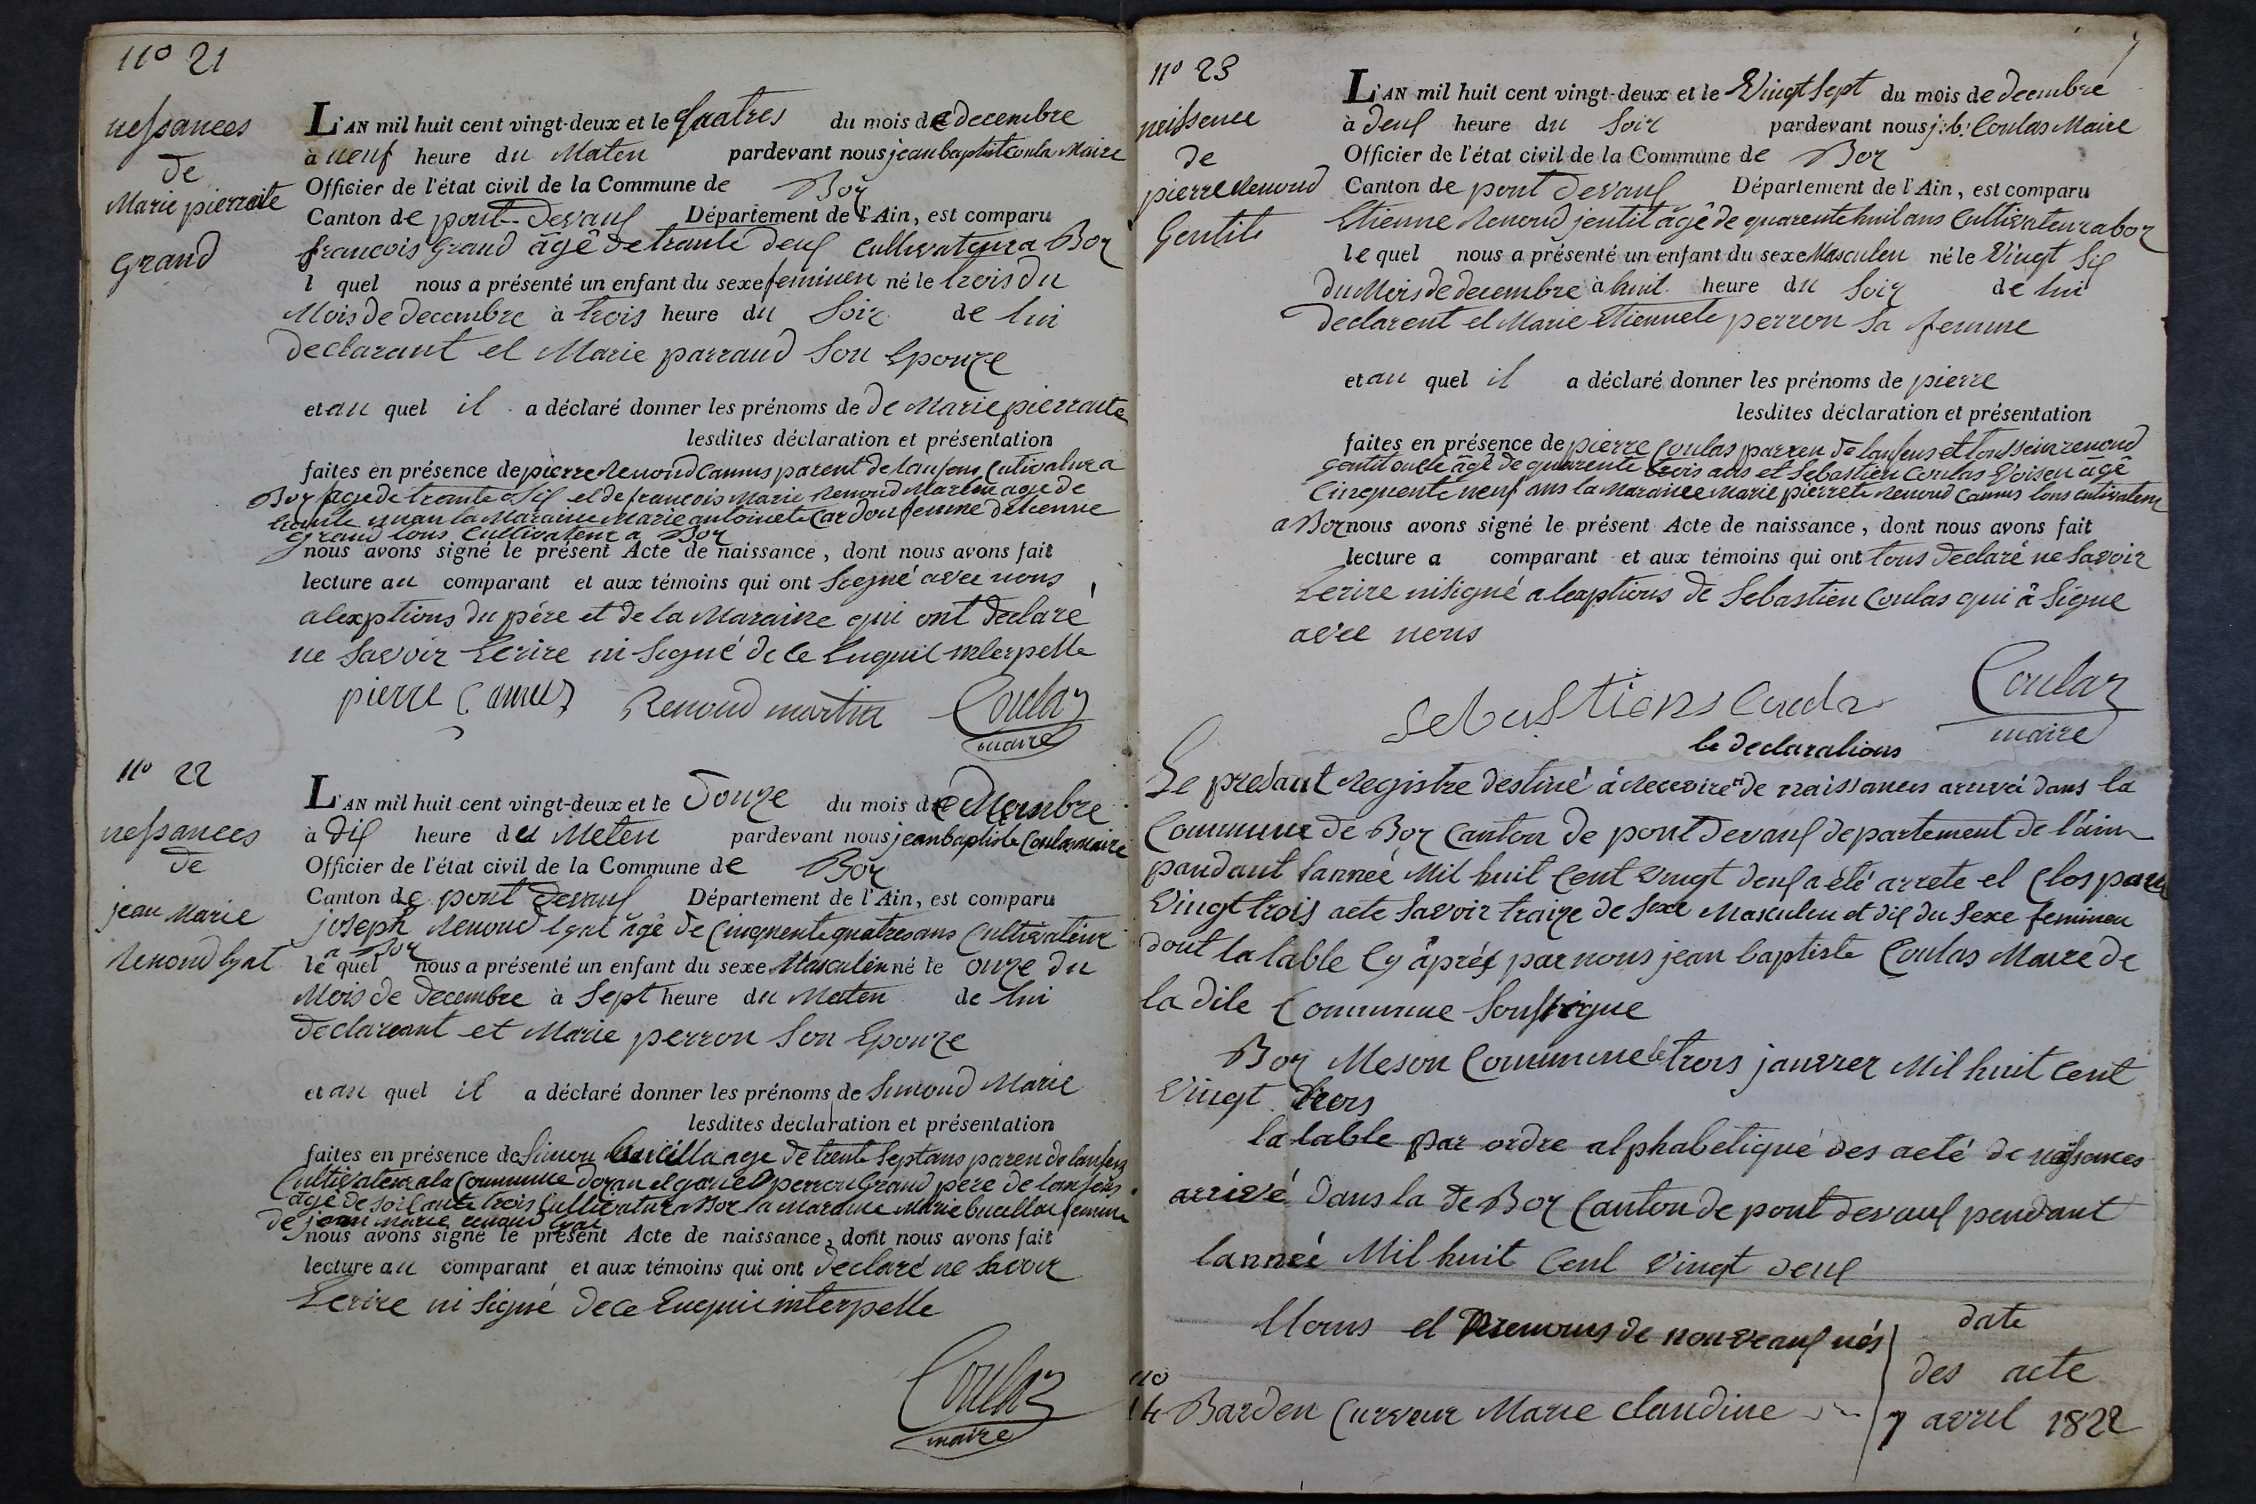 no 21
nessances
de
Marie pierrete
grand
L'AN mil huit cent vingt-deux et le quatres du mois de decembre
à neuf heure du Maten pardevant nous jean baptist Coula Maire
Officier de l'état civil de la Commune de Boz
Canton de pont-devaux Département de l'Ain, est comparu
francois Grand âgê de trante deux Cultivateur a Boz
l quel nous a présenté un enfant du sexe feminen né le trois du
Mois de decembre à trois heure du Soir de lui
declarant et Marie parraud Son Epouze
et au quel il a déclaré donner les prénoms de de Marie pierraite
lesdites déclaration et présentation
faites en présence de pierre Renoud Camus parent de lanfens Cutivatur a
Boz âge de trante Six et de francois Marie Renoud Marten age de
trante unan la Maraine Marie antoinete Cardon femme detienne
grand tous Cultivateur a Boz
nous avons signé le présent Acte de naissance, dont nous avons fait
lecture au comparant et aux témoins qui ont Siegné avec nous
alexptions du père et de la Maraine qui ont declaré
ne Savoir Eerire ni Segné de ce Enquit interpelle
pierre Camus Renoud martin Coulas
maire
no 22
nessances
de
jean Marie
Renoud lyat
L'AN mil huit cent vingt-deux et le Douze du mois de decembre
à dix heure du Meten pardevant nous jean baptiste Coulas maire
Officier de l'état civil de la Commune de Boz
Canton de pont devaux Département de l'Ain, est comparu
joseph Renoud lyat âgê de Cinquente quatres ans Cultivateur
a Boz
le quel nous a présenté un enfant du sexe Masculin né le onze du
Mois de decembre à Sept heure du Meten de lui
declareant et Marie perron Son Epouze
et au quel il a déclaré donner les prénoms de Simond Marie
lesdites déclaration et présentation
faites en présence de Simon Bucilla age de trente Sept ans paren de lanfens
Cultivateur a la Commune dozan et gariel perron Grand pere de lanfens
âgê de Soisante trois Cultivatur a Boz la maraine Marie bucillat femme
de jean Marie renoud lyat
nous avons signé le présent Acte de naissance, dont nous avons fait
lecture au comparant et aux témoins qui ont declaré ne Savoir
Eerire ni Signé de ce Enquit interpelle
Coulas
maire
7
no 23
neissence
de
pierre Renoud
Gentit
L'AN mil huit cent vingt-deux et le Vingt Sept du mois de decembre
à deux heure du Soir pardevant nous j: b: Coulas Maire
Officier de l'état civil de la Commune de Boz
Canton de pont devaux Département de l'Ain, est comparu
Etienne Renoud jentit âgê de quarente huit ans Cultivateur a boz
le quel nous a présenté un enfant du sexe Masculen né le Vingt Six
du Mois de decembre à huit heure du Soir de lui
declarent et Marie etiennete perron Sa femme
et au quel il a déclaré donner les prénoms de pierre
lesdites déclaration et présentation
faites en présence de pierre Coulas parren de lanfens et toussein renoud
gentit oncle âgê de quarente trois ans et Sebastien Coulas Voisen âgê
Cinquente neuf ans la Maraine Marie pierrete Renoud Camus tous cutivateur
a Boz nous avons signé le présent Acte de naissance, dont nous avons fait
lecture a comparant et aux témoins qui ont tous declaré ne Savoir
Eerire ni signé alexptions de Sebastien Coulas qui â Signe
avec nous
sebastiens Coula Coulas
maire
le declarations
Le presant Registre destiné à Recevoire de naissances arrivé dans la
Commune de Boz Canton de pont devaux departement de l'ain
pandant lannée Mil huit Cent Vingt deux a été arrete et Clos par
Vingt trois acte Savoir traize de Sexe Masculen et dix du Sexe femineu
dont la table Cy âprés par nous jean baptiste Coulas Maire de
la dite Commune Soussigne
Boz Meson Commune le trois janvier Mil huit Cent
Vingt trois
la table par ordre alphabetique des acté de naissances
arrivé dans la de Boz Canton de pont devaux pendant
lannée Mil huit Cent Vingt deux
Noms et Prenoms de nouveaux nés date
des acte
no
14 Barden Curveur Marie Claudine 7 avril 1822